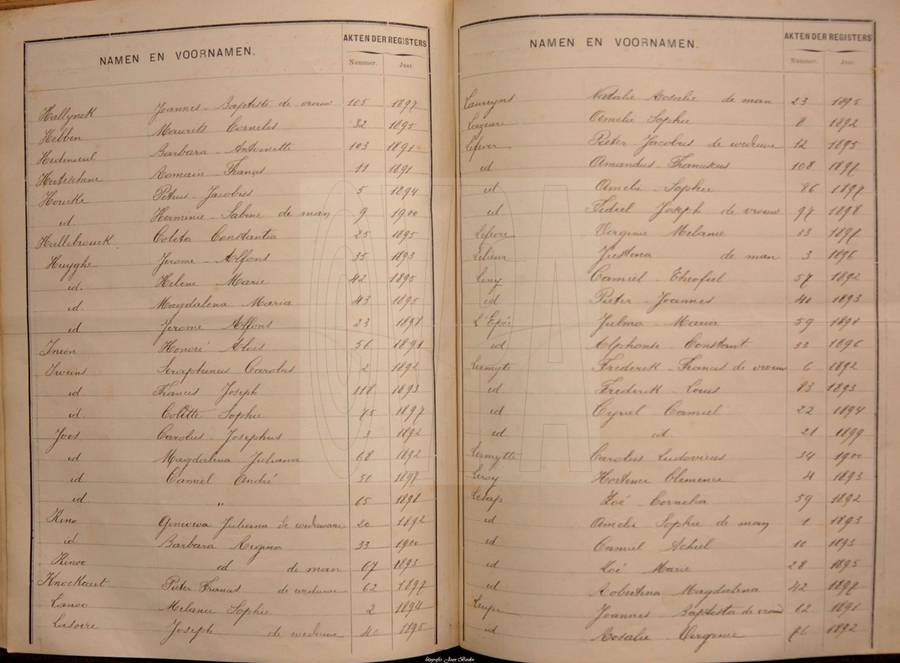 NAMEN EN VOORNAMEN.
AKTEN DER REGISTERS
Nummer. Jaar.
Hallynck Joannes-Baptiste de vrouw 105 1897
Hebben Maurits Cornelis 32 1895
Barbara Antoinette 103 1891
Romain Frans 11 1891
Houcke Petrus Jacobus 5 1894
id Herminie Sabine de man 9 1900
Hullebrouck Coleta Constantia 25 1895
Huyghe Jerome Alfons 35 1893
id Helene Marie 42 1895
id Magdalena Maria 43 1895
id Jerome Alfons 23 1898
Honoré Alois 56 1891
Iweins Seraphinus Carolus 2 1892
id Francis Joseph 118 1893
id Colette Sophie 75 1897
Joos Carolus Josephus 3 1892
id Magdalena Juliana 68 1892
id Camiel André 50 1897
id " 65 1898
Kino Genoveva Juliana de weduwnaar 20 1892
id Barbara Regina 33 1900
Kinoo id de man 67 1893
Knockaert Pieter Francis de weduwe 62 1897
Lanoo Melanie Sophie 2 1894
Joseph de weduwe 40 1895
NAMEN EN VOORNAMEN.
AKTEN DER REGISTERS
Nummer. Jaar.
Laureyns Natalie Rosalie de man 23 1895
Amelie Sophie 8 1892
Lefever Pieter Jacobus de weduwe 12 1895
id Amandus Franciskus 108 1897
id Amelie Sophie 86 1897
id Fideel Joseph de vrouw 97 1898
Lefevre Virginie Melanie 13 1897
Justina de man 3 1896
Leny Camiel Theofiel 57 1892
id Pieter Joannes 40 1893
L'Epée Julma Maria 59 1891
id Alphonse Constant 33 1896
Lermyte Frederik Francis de vrouw 6 1892
id Frederik Louis 83 1893
id Cyriel Camiel 22 1894
id id 21 1899
Lermytte Carolus Ludovicus 34 1900
Leroy Hortence Clemence 4 1893
Zoé Cornelia 59 1892
id Amelie Sophie de man 1 1893
id Camiel Achiel 10 1893
id Zoé Marie 28 1895
id Robertina Magdalena 42 1897
Joannes Baptista de vrouw 62 1891
id Rosalie Virginie 76 1892